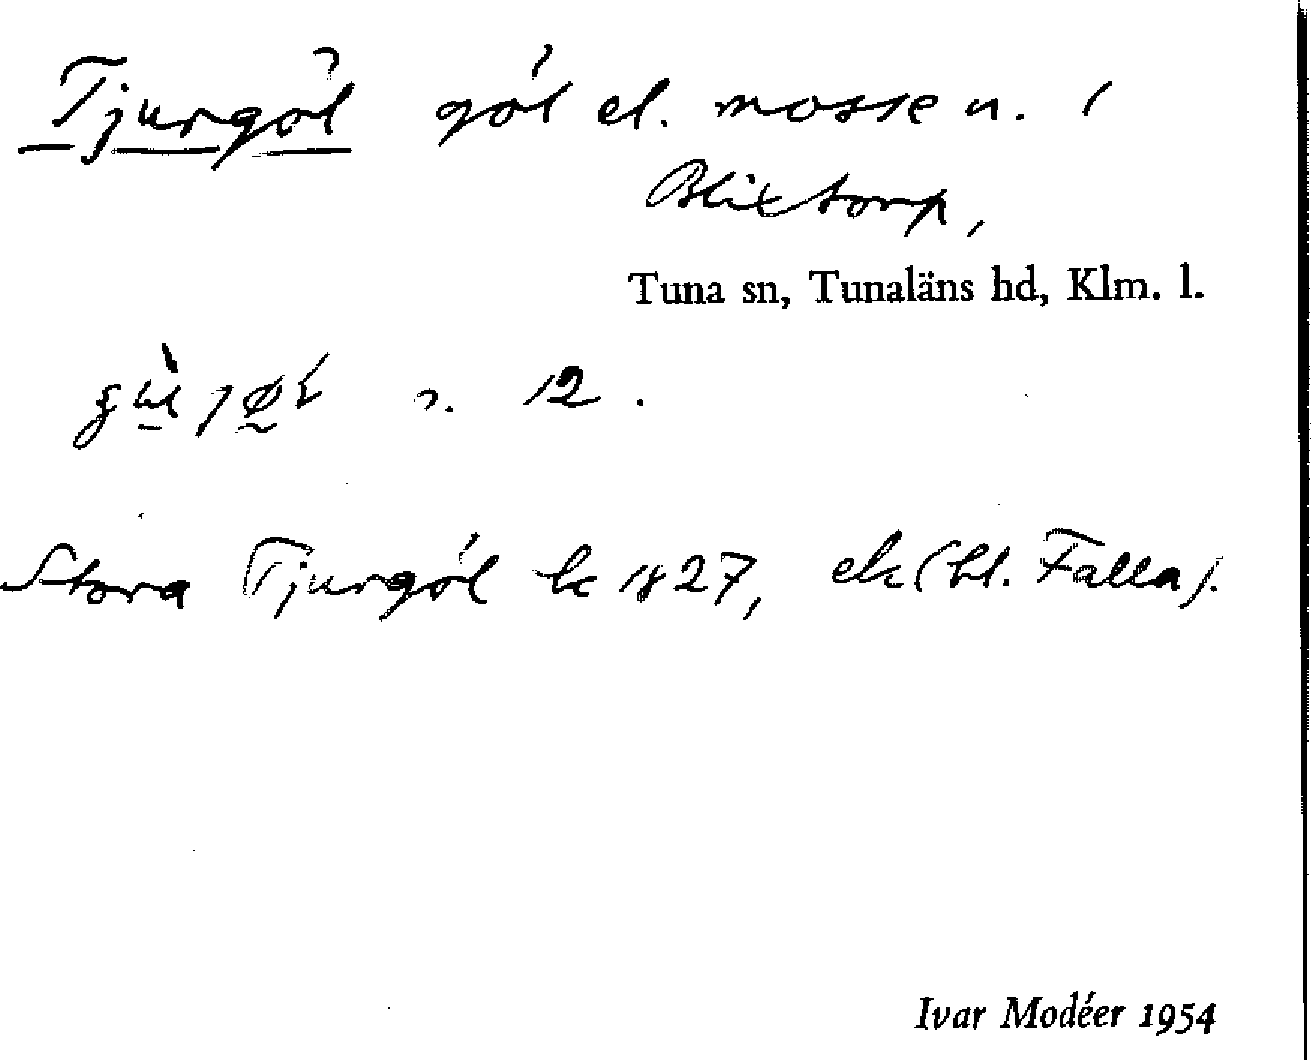 Tjurgöl göl el. mosse n. i
Blixtorp,
Tuna sn, Tunaläns hd, Klm. l.
12.
Stora Tjurgöl lc 1827, ek (bl. Falla).
Ivar Modéer 1954